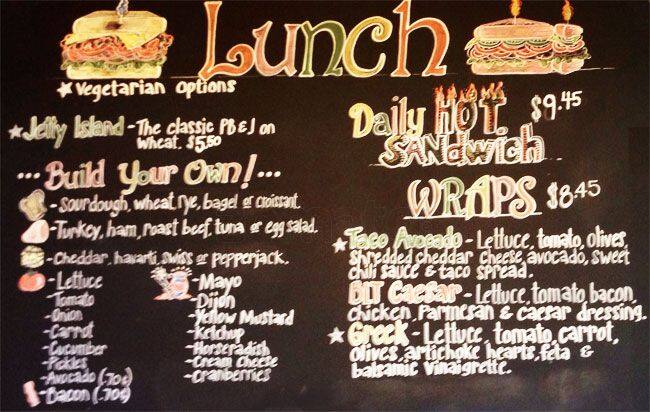 Lunch
★ Vegetarian Options
★ Jelly Island - The classic PB & J on
wheat. $5.50
... Build Your Own! ...
- Sourdough, wheat, rye, bagel or croissant.
- Turkey, ham, roast beef, tuna or egg salad.
- Cheddar, havarti, swiss or pepperjack.
- Lettuce
- Tomato
- Onion
- Carrot
- Cucumber
- Pickles
- Avocado (.70¢)
- Bacon (.70¢)
- Mayo
- Dijon
- Yellow Mustard
- Ketchup
- Horseradish
- Cream Cheese
- Cranberries
Daily HOT $9.45
SANDWich
WRAPS $8.45
★ Taco Avocado - Lettuce, tomato, olives,
shredded cheddar cheese, avocado, sweet
chili sauce & taco spread.
BLT Caesar - Lettuce, tomato, bacon,
chicken, Parmesan & caesar dressing.
★ Greek - Lettuce, tomato, carrot,
olives, artichoke hearts, feta &
balsamic vinaigrette.